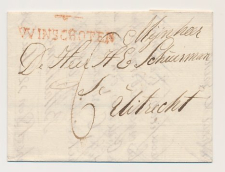 WINSCHOTEN
Mijnheer
De Heer H E Schuurman
te
Utrecht